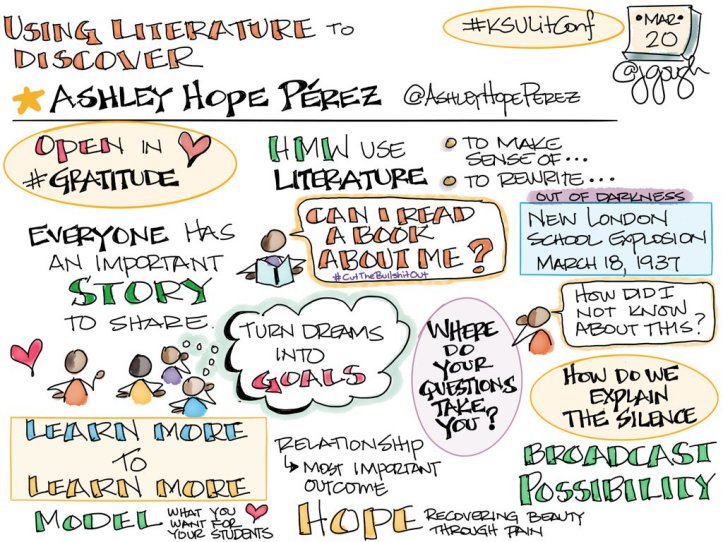 USING LITERATURE TO
DISCOVER
#KSULitConf
•MAR•
20
@jgough
ASHLEY HOPE PÉREZ @ASHLEYHOPEPEREZ
OPEN IN
#GRATITUDE
HMW USE
LITERATURE
TO MAKE
SENSE OF...
TO REWRITE...
OUT OF DARKNESS
NEW LONDON
SCHOOL EXPLOSION
MARCH 18, 1937
EVERYONE HAS
AN IMPORTANT
STORY
TO SHARE.
CAN I READ
A BOOK
ABOUT ME?
#CutTheBullshitOut
HOW DID I
NOT KNOW
ABOUT THIS?
TURN DREAMS
INTO
GOALS
WHERE
DO
YOUR
QUESTIONS
TAKE
YOU?
HOW DO WE
EXPLAIN
THE SILENCE
LEARN MORE
TO
LEARN MORE
RELATIONSHIP
↳ MOST IMPORTANT
OUTCOME
BROADCAST
POSSIBILITY
MODEL WHAT YOU
WANT FOR
YOUR STUDENTS
HOPE RECOVERING BEAUTY
THROUGH PAIN